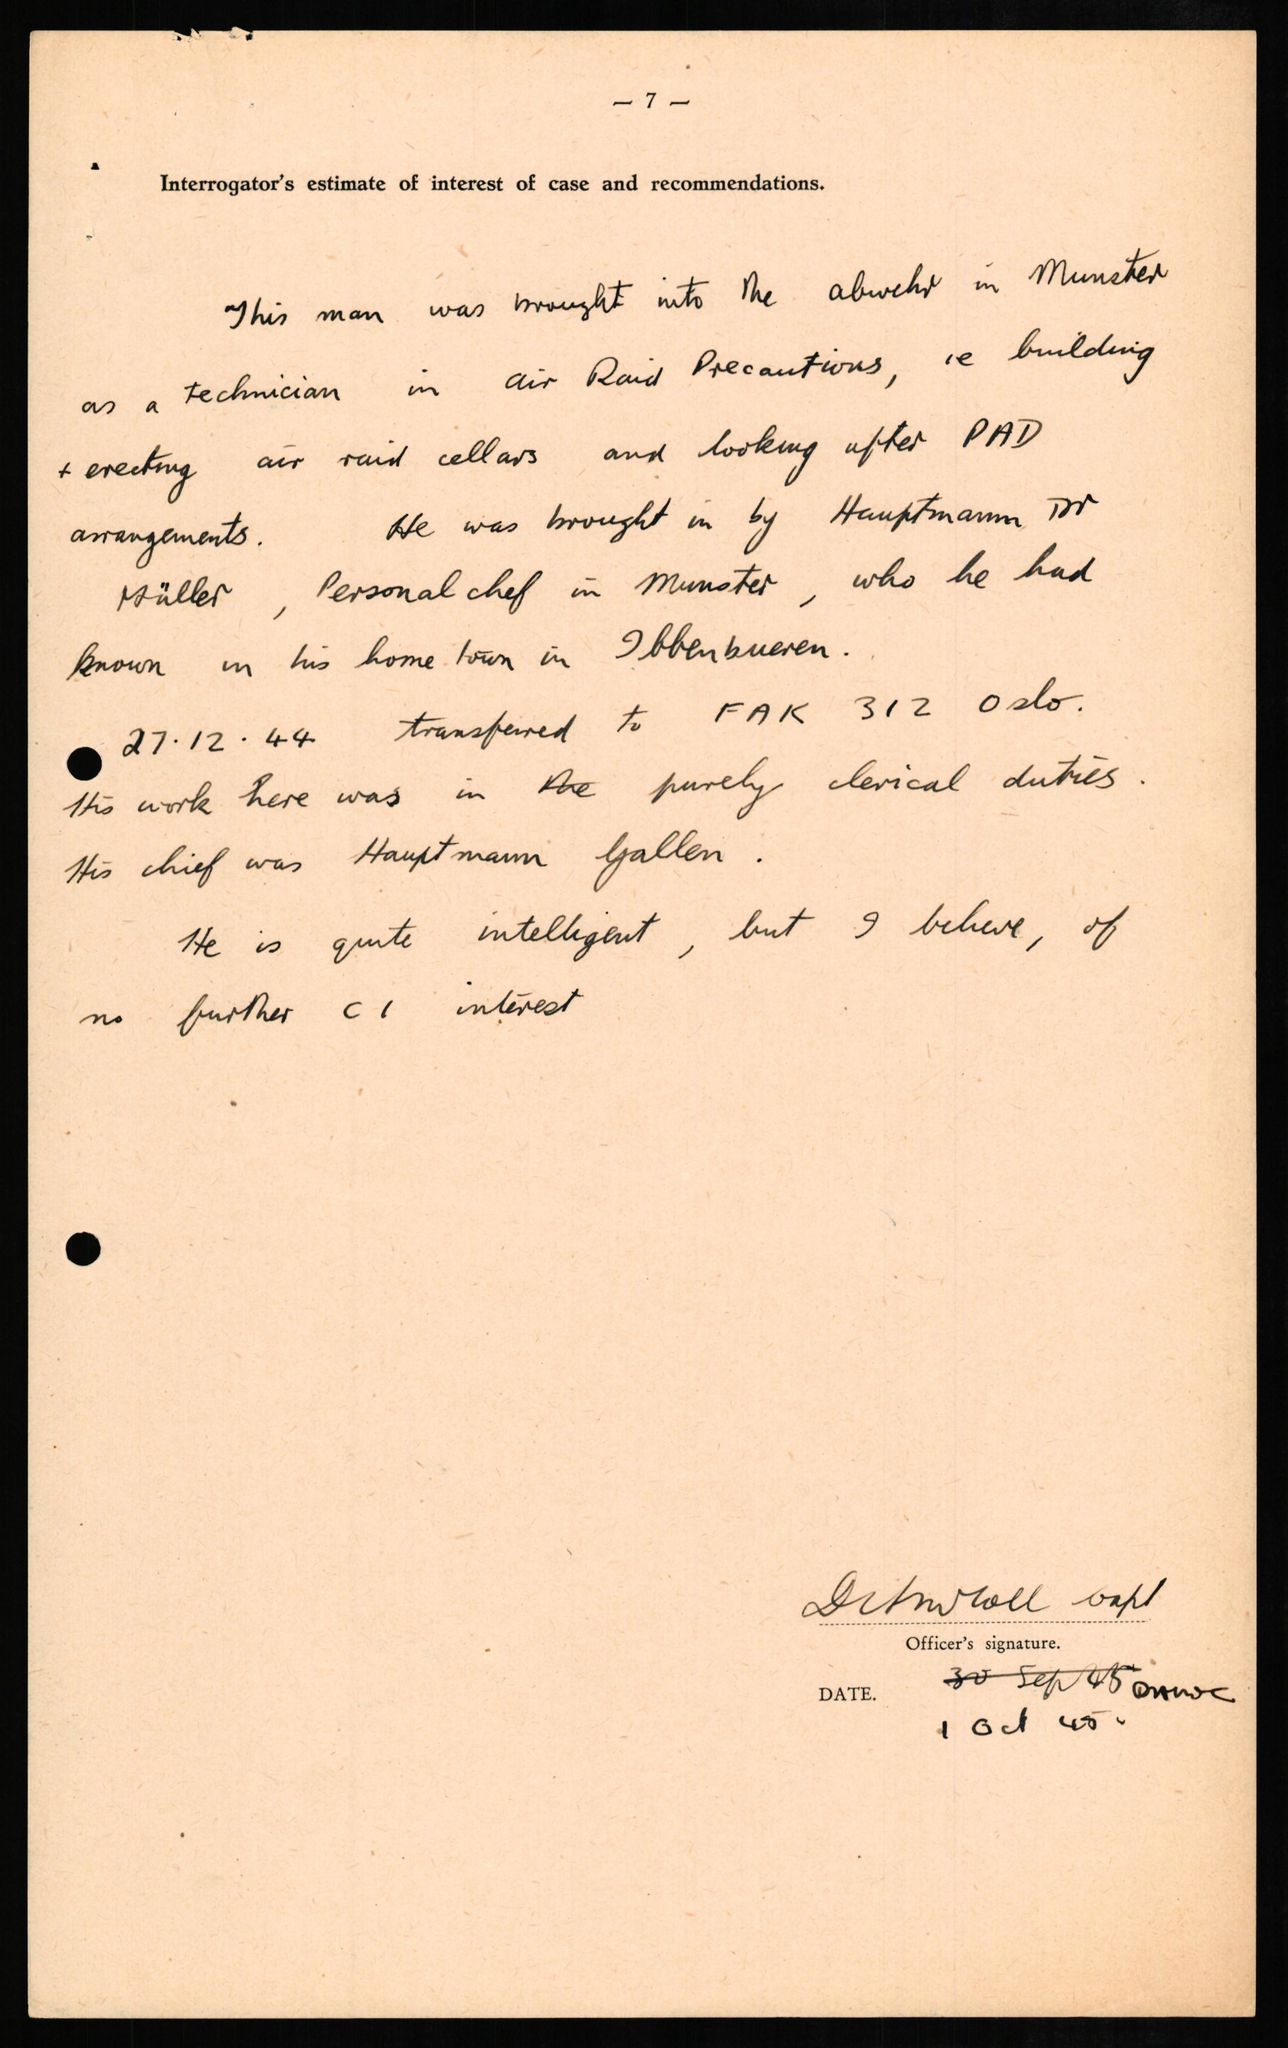 — 7 —
Interrogator's estimate of interest of case and recommendations.
This man was brought into the abwehr in Munster
as a technician in Air Raid Precautions, ie building
+ erecting air raid cellars and looking after PAD
arrangements. He was brought in by Hauptmann Dr
Hüller, Personalchef in Munster, who he had
known in his home town in Ibbenbueren.
27.12.44 transferred to FAK 312 Oslo.
His work here was in the purely clerical duties.
His chief was Hauptmann Gallen.
He is quite intelligent, but I believe, of
no further CI interest
Capt
Officer's signature.
DATE. 30 Sep 45
1 Oct 45.